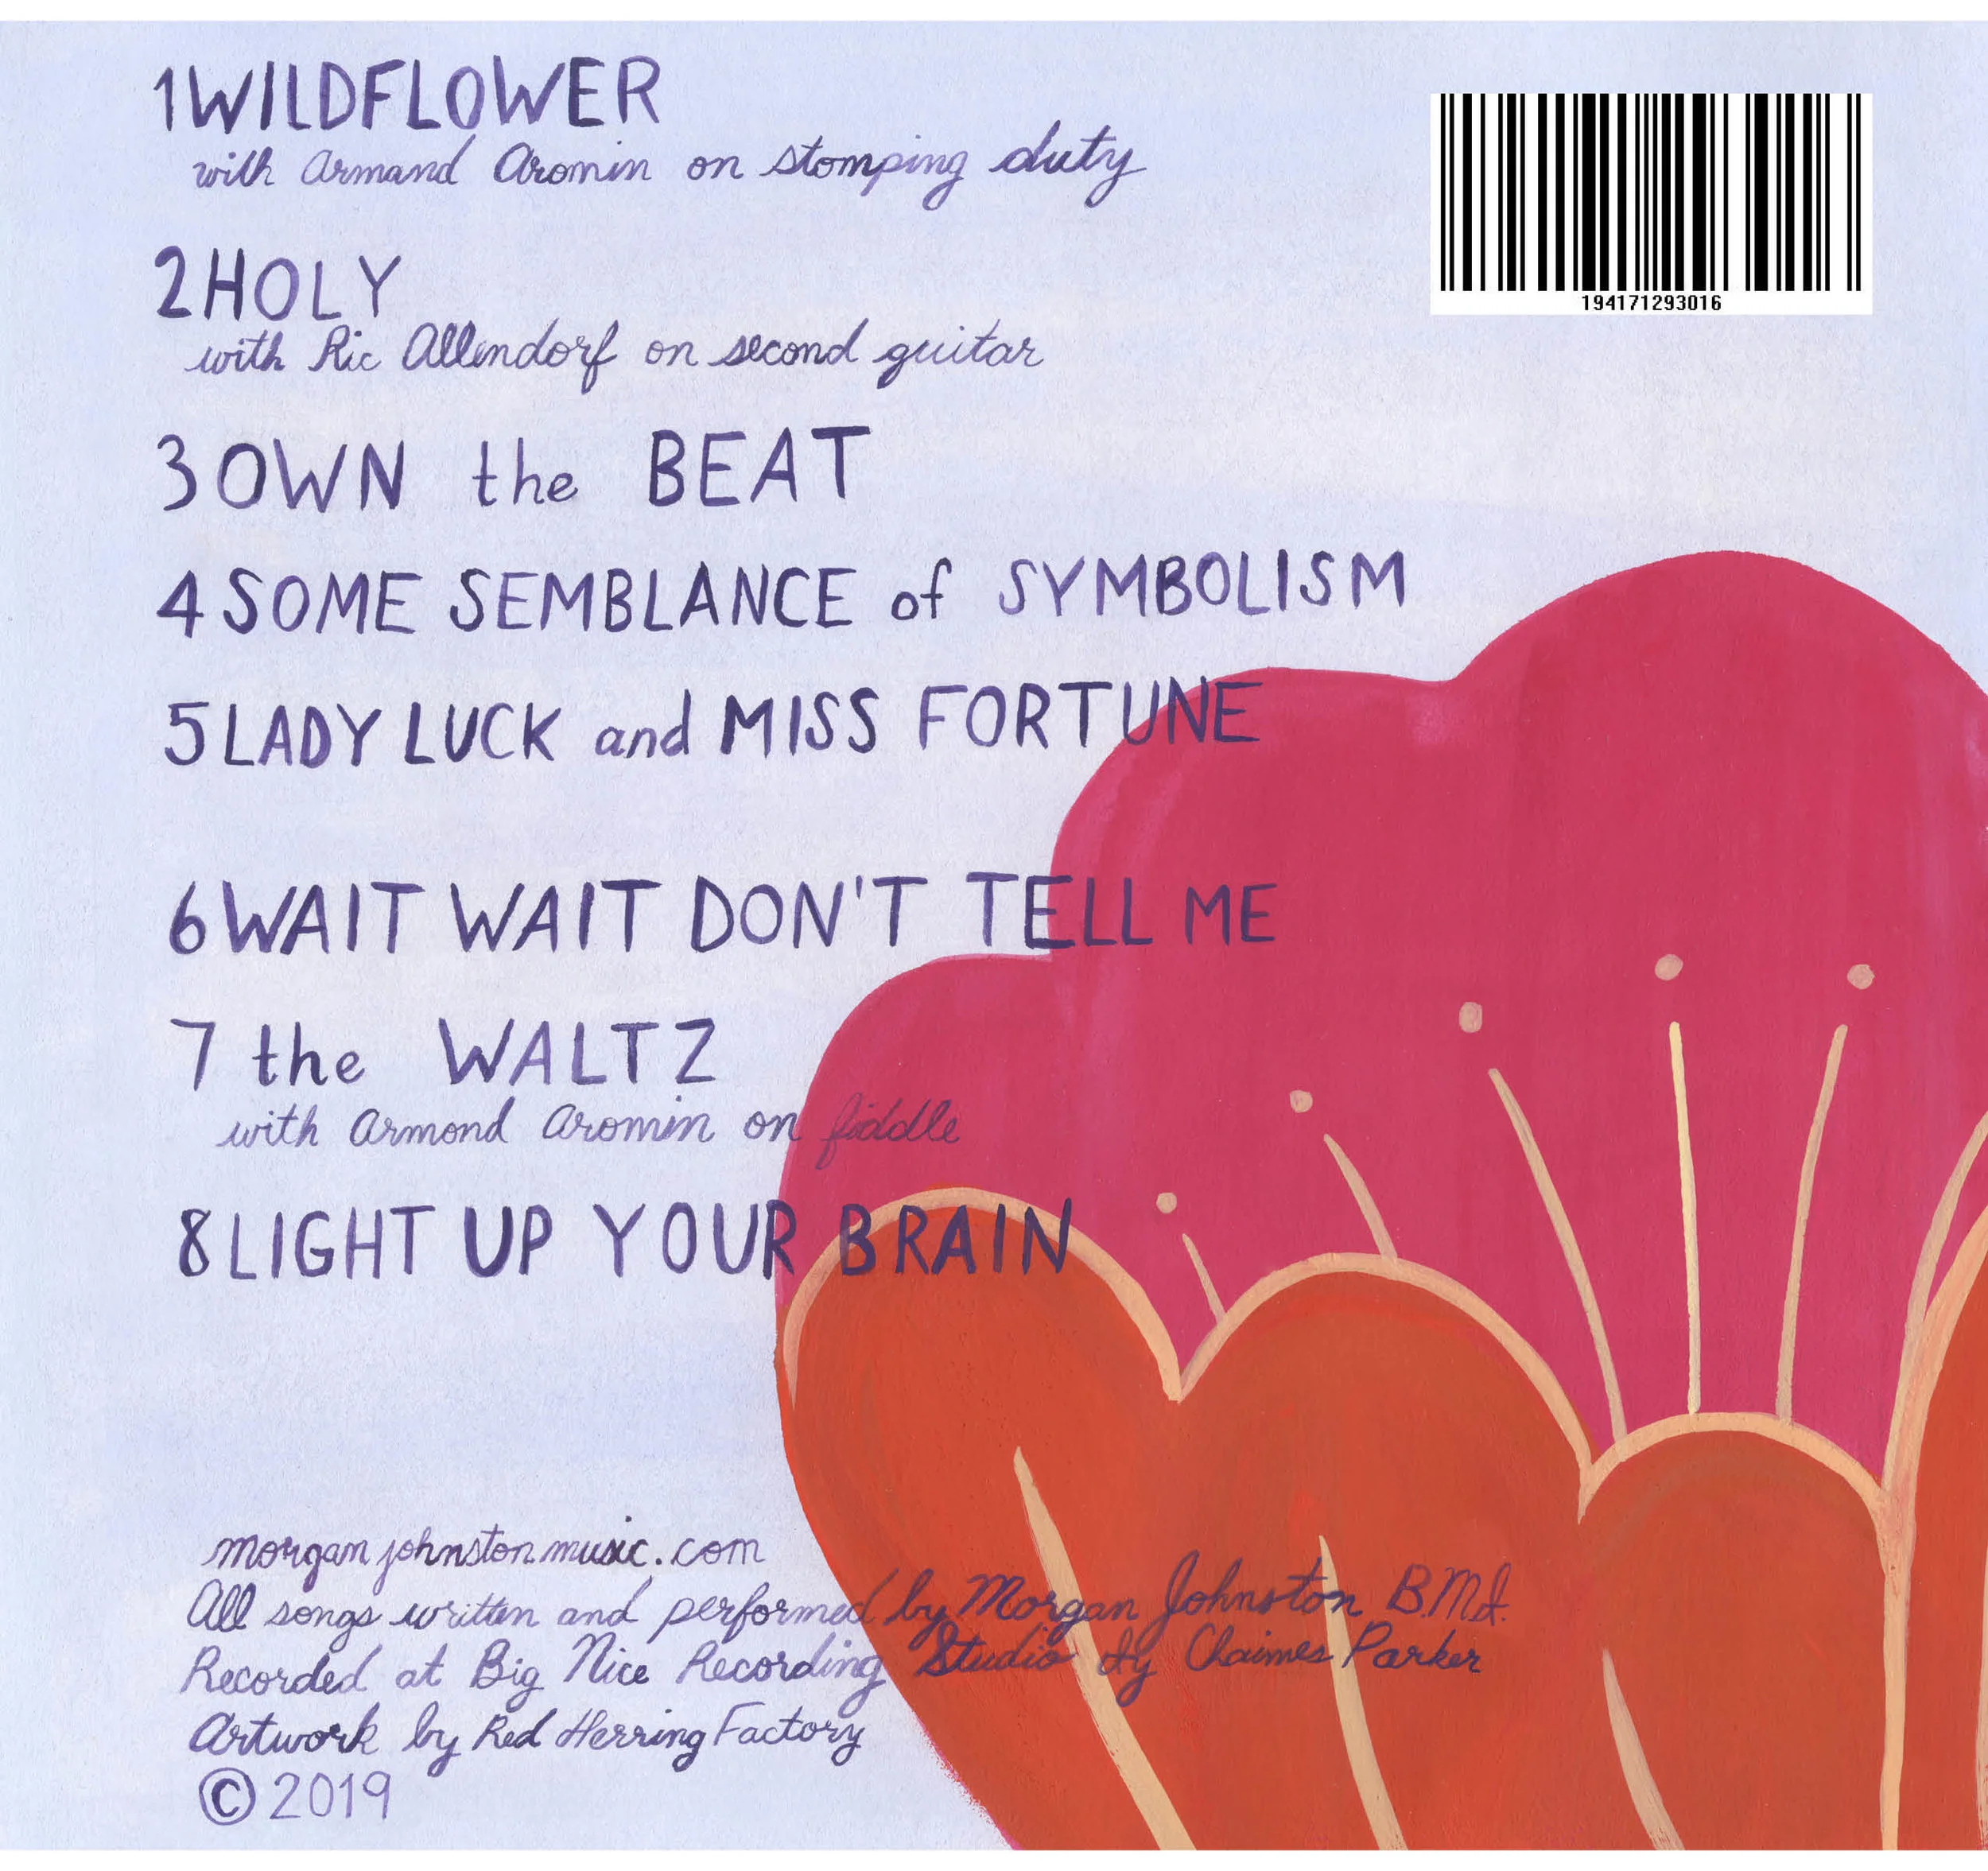 1 WILDFLOWER
with Armand Aromin on stomping duty
194171293016
2 HOLY
with Ric Allendorf on second guitar
3 OWN the BEAT
4 SOME SEMBLANCE of SYMBOLISM
5 LADY LUCK and MISS FORTUNE
6 WAIT WAIT DON'T TELL ME
7 the WALTZ
with Armond Aromin on fiddle
8 LIGHT UP YOUR BRAIN
morganjohnstonmusic.com
All songs written and performed by Morgan Johnston B.M.I.
Recorded at Big Nice Recording Studio by Chaimes Parker
Artwork by Red Herring Factory
© 2019